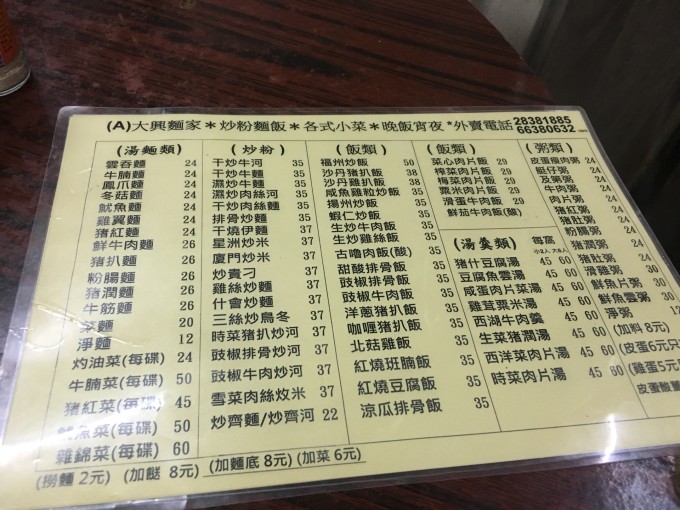 (A)大興麵家＊炒粉麵飯＊各式小菜＊晚飯宵夜*外賣電話 28381885
66380632
(湯麵類)
雲吞麵 24
牛腩麵 24
鳳爪麵 24
冬菇麵 24
魷魚麵 24
雞翼麵 24
猪紅麵 24
鮮牛肉麵 26
猪扒麵 26
粉腸麵 26
猪潤麵 26
牛筋麵 26
菜麵 20
淨麵 12
灼油菜(每碟) 24
牛腩菜(每碟) 50
猪紅菜(每碟) 45
魷魚菜(每碟) 50
雜錦菜(每碟) 60
(炒粉)
干炒牛河 35
干炒牛麵 35
濕炒牛河 35
濕炒肉絲河 35
干炒肉絲麵 35
排骨炒麵 37
干燒伊麵 37
星洲炒米 37
廈門炒米 37
炒貴刁 37
雞絲炒麵 37
什會炒麵 37
三絲炒烏冬 37
時菜猪扒炒河 37
豉椒排骨炒河 37
豉椒牛肉炒河 37
雪菜肉絲炆米 37
炒齋麵/炒齋河 22
(飯類)
福州炒飯 50
沙丹猪扒飯 38
沙丹雞扒飯 38
咸魚雞粒炒飯 35
揚州炒飯 35
蝦仁炒飯 35
生炒牛肉飯 35
生炒雞絲飯 35
古嚕肉飯(酸) 35
甜酸排骨飯 35
豉椒排骨飯 35
豉椒牛肉飯 35
洋蔥猪扒飯 35
咖喱猪扒飯 35
北菇雞飯 35
紅燒班腩飯 35
紅燒豆腐飯 35
涼瓜排骨飯 35
(飯類)
菜心肉片飯 29
榨菜肉片飯 29
梅菜肉片飯 29
粟米肉片飯 29
滑蛋牛肉飯 29
鮮茄牛肉飯(酸)
(湯羹類) 每窩
小2人 大4人
猪什豆腐湯 45 60
豆腐魚雲湯 45 60
咸蛋肉片菜湯 45 60
雞茸粟米湯 45 60
西湖牛肉羹 45 60
生菜猪潤湯 45 60
西洋菜肉片湯 45 60
時菜肉片湯 45 60
(粥類)
皮蛋瘦肉粥 24
艇仔粥 24
及第粥 24
牛肉粥 24
肉片粥 24
猪紅粥 24
猪肚粥 24
粉腸粥 24
猪潤粥 24
滑雞粥 30
鮮魚片粥 30
鮮魚雲粥 30
淨粥 12
(加料 8元)
(皮蛋 6元只
(雞蛋 5元
皮蛋酸薑
(撈麵 2元) (加餸 8元) (加麵底 8元) (加菜 6元)